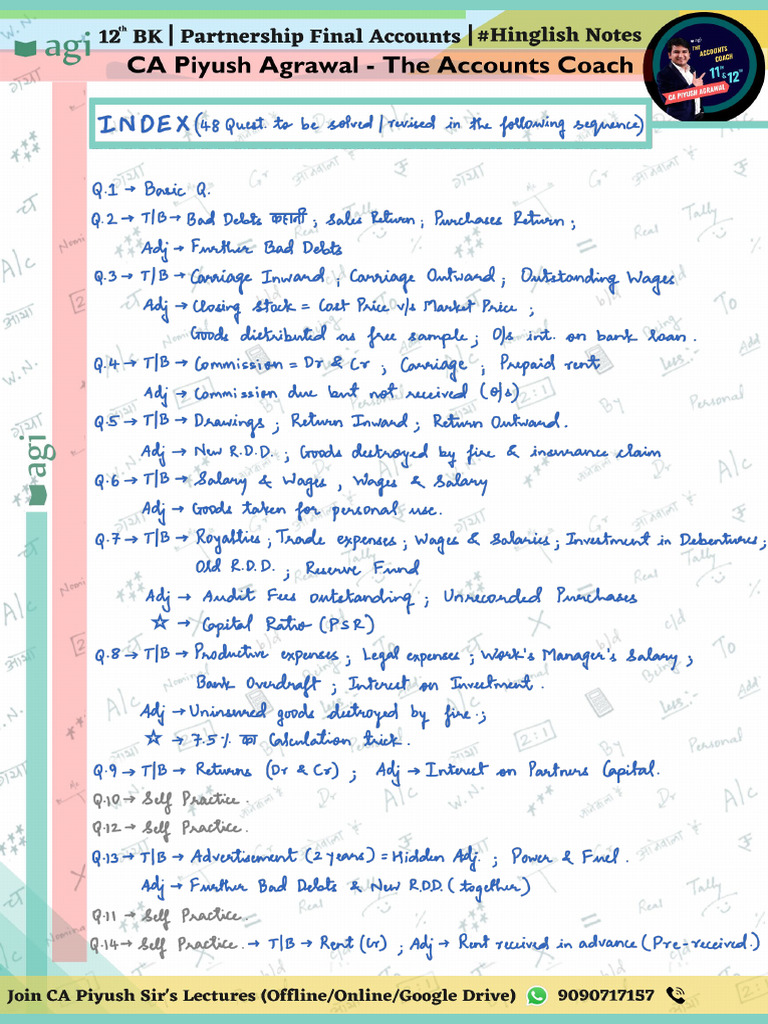 agi 12th BK | Partnership Final Accounts | #Hinglish Notes
CA Piyush Agrawal - The Accounts Coach
agi THE ACCOUNTS COACH 11th & 12th CA PIYUSH AGRAWAL
INDEX (48 Quest. to be solved / revised in the following sequence)
Q.1 → Basic Q.
Q.2 → T/B → Bad Debts कहानी ; Sales Return ; Purchases Return ;
Adj → Further Bad Debts
Q.3 → T/B → Carriage Inward ; Carriage Outward ; Outstanding Wages
Adj → Closing stock = Cost Price v/s Market Price ;
Goods distributed as free sample ; O/s int. on bank loan.
Q.4 → T/B → Commission = Dr & Cr ; Carriage ; Prepaid rent
Adj → Commission due but not received (O/s)
Q.5 → T/B → Drawings ; Return Inward ; Return Outward.
Adj → New R.D.D. ; Goods destroyed by fire & insurance claim
Q.6 → T/B → Salary & Wages , Wages & Salary
Adj → Goods taken for personal use.
Q.7 → T/B → Royalties ; Trade expenses ; Wages & Salaries ; Investment in Debentures ;
Old R.D.D. ; Reserve Fund
Adj → Audit Fees outstanding ; Unrecorded Purchases
☆ → Capital Ratio (PSR)
Q.8 → T/B → Productive expenses ; Legal expenses ; Work's Manager's Salary ;
Bank Overdraft ; Interest on Investment.
Adj → Uninsured goods distroyed by fire. ;
☆ → 7.5% का Calculation trick.
Q.9 → T/B → Returns (Dr & Cr) ; Adj → Interest on Partners Capital.
Q.10 → Self Practice.
Q.12 → Self Practice.
Q.13 → T/B → Advertisement (2 years) = Hidden Adj. ; Power & Fuel.
Adj → Further Bad Debts & New R.D.D. (together)
Q.11 → Self Practice.
Q.14 → Self Practice. → T/B → Rent (Cr) ; Adj → Rent received in advance (Pre-received.)
agi
Join CA Piyush Sir's Lectures (Offline/Online/Google Drive) 9090717157